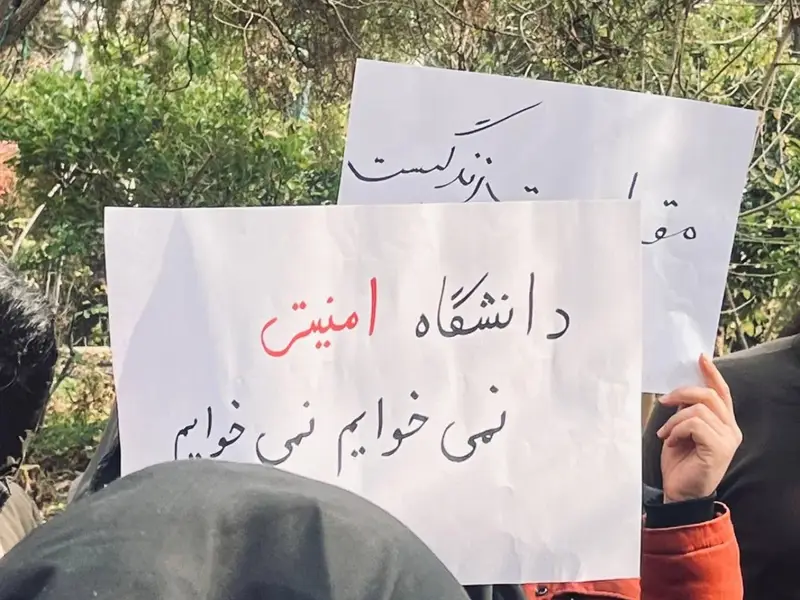 زندگیست
دانشگاه امنیتی
نمی خوایم نمی خوایم